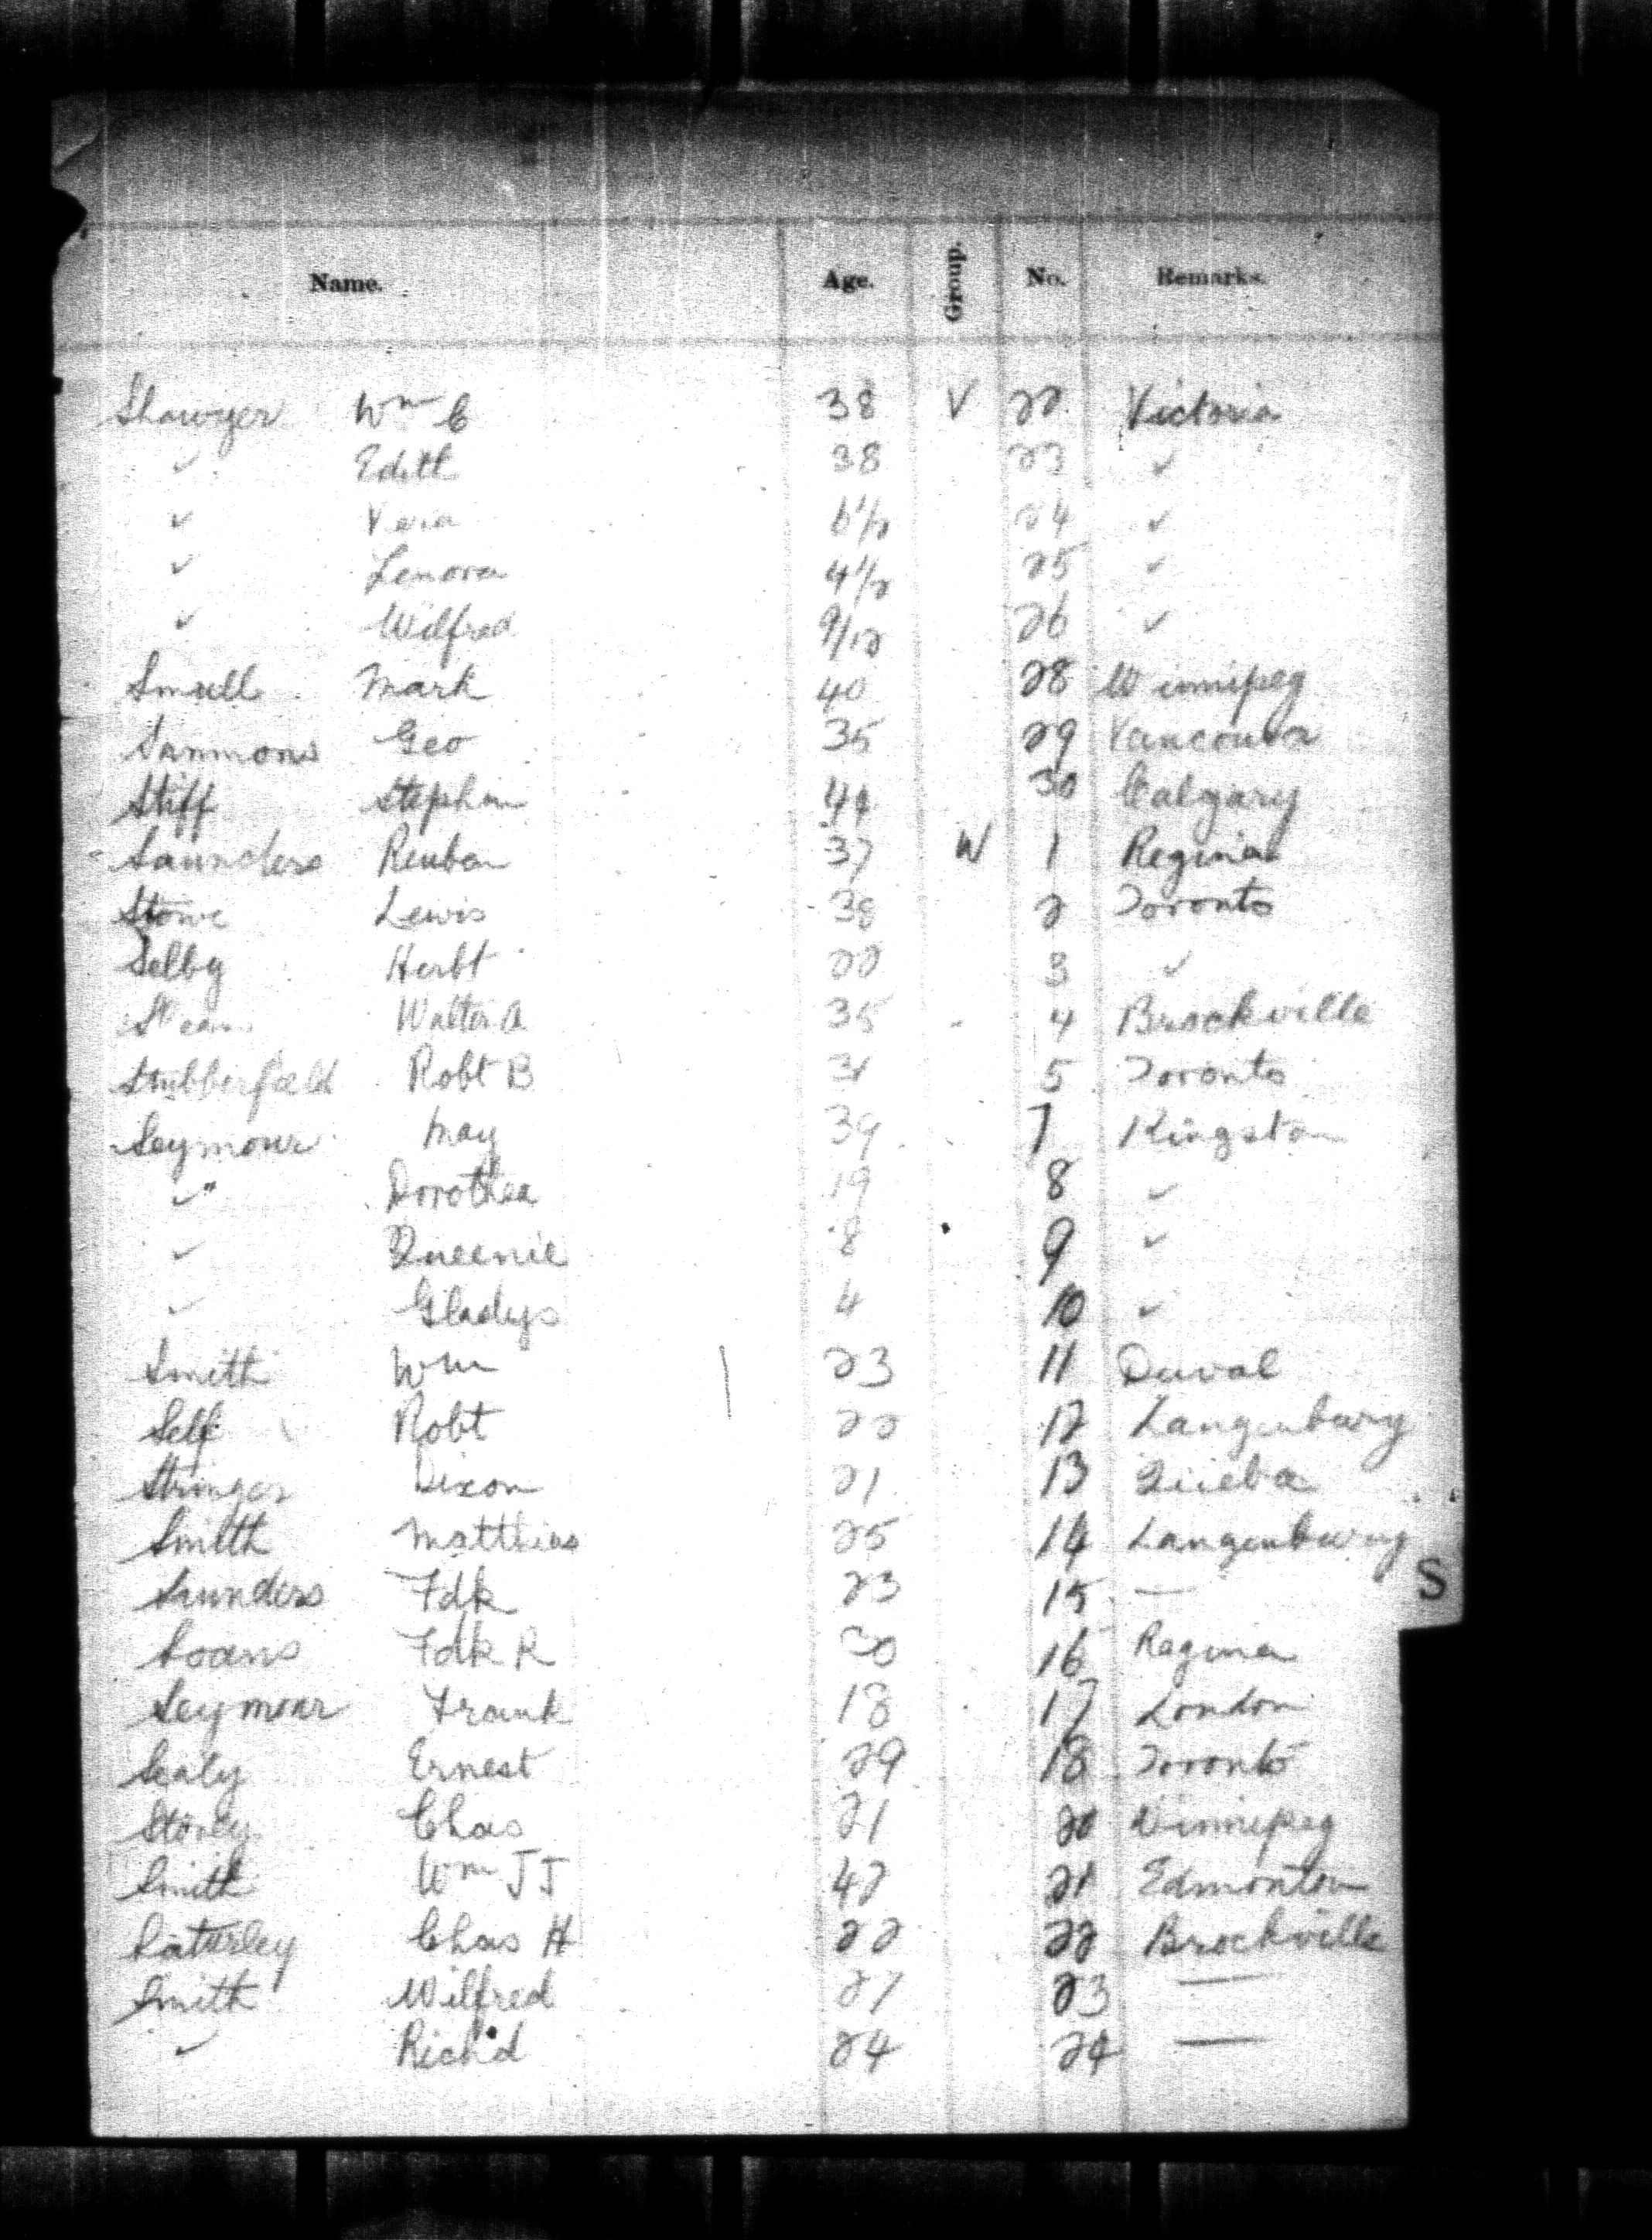 Name. Age. Group. No. Remarks.
Shawyer Wm C 38 V 22 Victoria
✓ Edith 38 23 ✓
✓ Vera 6 1/2 24 ✓
✓ Lenora 4 1/2 25 ✓
✓ Wilfred 9/12 26 ✓
Small Mark 40 28 Winnipeg
Sammons Geo 35 29 Vancouver
Stiff Stephen 44 30 Calgary
Saunders Reuben 37 W 1 Regina
Stowe Lewis 38 2 Toronto
Selby Herbt 22 3 ✓
Walter A 35 4 Brockville
Stubberfield Robt B 31 5 Toronto
Seymour May 39 7 Kingston
✓" Dorothea 19 8 ✓
✓ Queenie 8 9 ✓
✓ Gladys 4 10 ✓
Smith Wm 23 11 Duval
Self Robt 22 12 Langenburg
Stringer Dixon 21 13 Quebec
Smith Matthias 25 14 Langenburg
Saunders Fdk 23 15 —
S
Soans Fdk R 16 Regina
Seymour Frank 18 17 London
Sealy Ernest 29 18 Toronto
Storey Chas 21 20 Winnipeg
Smith Wm J J 42 21 Edmonton
Satterley Chas H 22 22 Brockville
Smith Wilfred 27 23 —
✓ Rich'd 24 24 —